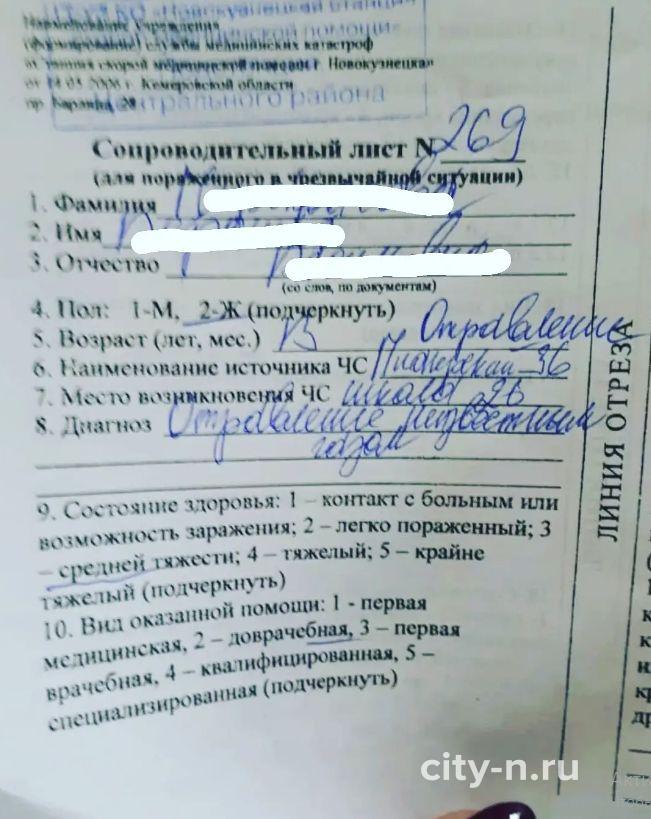 Новокузнецкая станция
медицинской помощи"
Наименование учреждения
(формирование) службы медицинских катастроф
скорой медицинской помощи г. Новокузнецка»
от 14 05 2006 г. Кемеровской области
пр. 20
Центрального района
Сопроводительный лист N 269
(для пораженного в чрезвычайной ситуации)
1. Фамилия
2. Имя
3. Отчество
(со слов, по документам)
4. Пол: 1-М, 2-Ж (подчеркнуть)
5. Возраст (лет, мес.) 13 Отравление
6. Наименование источника ЧС Пионерская 36
7. Место возникновения ЧС школа 26
8. Диагноз Отравление неизвестным
газом
9. Состояние здоровья: 1 – контакт с больным или
возможность заражения; 2 – легко пораженный; 3
– средней тяжести; 4 – тяжелый; 5 – крайне
тяжелый (подчеркнуть)
10. Вид оказанной помощи: 1 - первая
медицинская, 2 – доврачебная, 3 – первая
врачебная, 4 – квалифицированная, 5 –
специализированная (подчеркнуть)
ЛИНИЯ ОТРЕЗА
city-n.ru